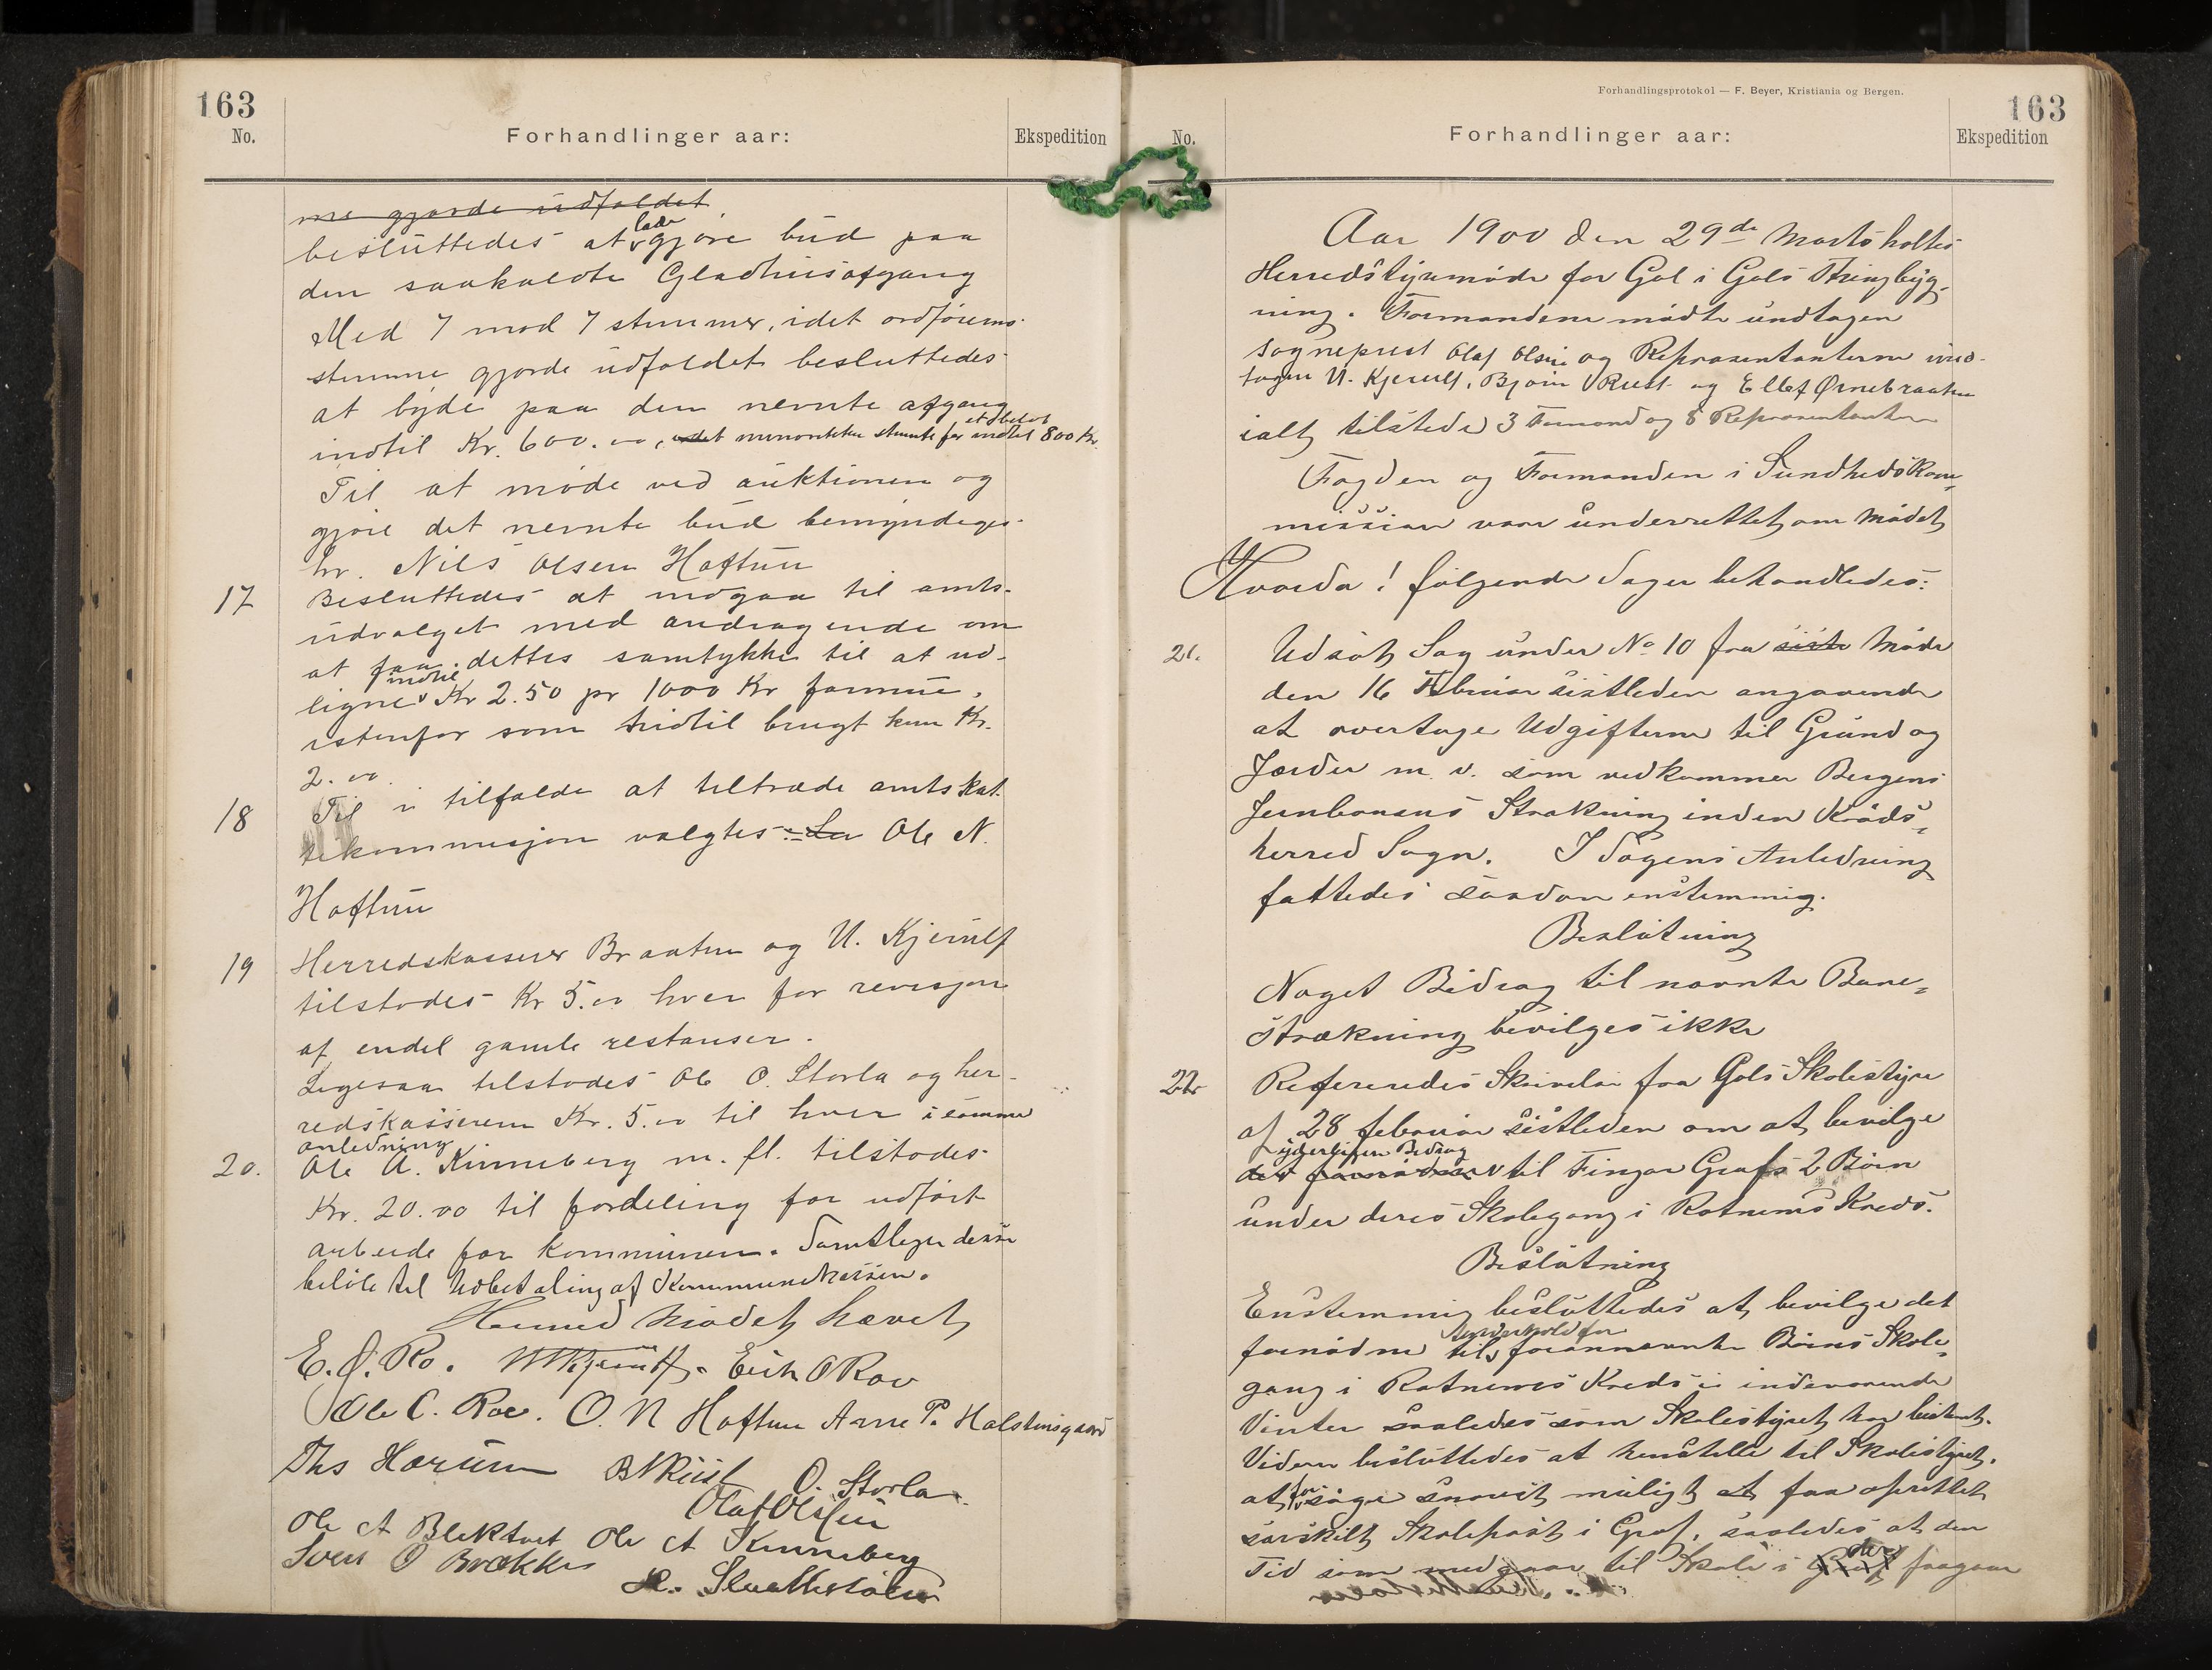 163
No.
Forhandlinger aar:
Ekspedition
me gjorde udfaldet
besluttedes at lade gjøre bud paa
den saakaldte Gladhusafgang
Med 7 mod 7 stemmer, idet ordførerens
stemme gjorde udfaldet besluttedes
at byde paa den nevnte afgang
indtil Kr. 600.00, idet minoriteten stemte for et beløb indtil 800 Kr.
Til at møde ved auktionen og
gjøre det nevnte bud bemyndiges
hr. Nils Olsen Hoftun
17 Besluttedes at indgaa til amts-
udvalget med andragende om
at faa dettes samtykke til at ud-
ligne indtil Kr 2.50 pr 1000 Kr formue,
istenfor som hidtil brugt kun Kr.
2.00.
18 Til i tilfælde at tiltræde amtskat-
tekommisjon valgtes: Ole N.
Hoftun
19 Herredskasserer Braaten og U. Kjerulf
tilstodes Kr 5.00 hver for revisjon
af endel gamle restanser.
Ligesaa tilstodes Ole O. Storla og her-
redskassereren Kr. 5.00 til hver i samme
anledning
20. Ole A. Kinneberg m. fl. tilstodes
Kr. 20.00 til fordeling for udført
arbeide for kommunen. Samtlige disse
beløb til Udbetaling af Kommunekassen.
Hermed Mødet hævet
E. O. Ro. U Kjerulf. Erik O Roo
Ole C. Roe. O. N Hoftun Arne P. Halstensgaard
Ths Harum B N Rust O. Storla
Olaf Olsen
Ole A Blektvet Ole A Kinneberg
Sven O Brække
H. Slaatthølen
Forhandlingsprotokol — F. Beyer, Kristiania og Bergen.
163
No.
Forhandlinger aar:
Ekspedition
Aar 1900 den 29de Marts holtes
Herredstyremøde for Gol i Gols Thingbyg-
ning. Formændene mødte undtagen
sogneprest Olaf Olsen og Repræsentanterne und-
tagen U. Kjerulf, Bjørn Rust og Ellef Ørnebraaten
ialt tilstede 3 Formænd og 8 Repræsentanter
Fogden og Formanden i Sundhedskom-
mission var underrettet om Mødet
Hvorda! følgende Sager behandledes:
21. Udsat Sag under No 10 fra siste Møde
den 16 Februar sistleden angaaende
at overtage Udgifterne til Grund og
Jorder m. v. som vedkommer Bergens
Jernbanens Strækning inden Kråds-
herred Sogn. I Sagens Anledning
fattedes saadan enstemmig.
Beslutning
Noget Bidrag til nævnte Bane-
strækning bevilges ikke
22 Refereredes Skrivelse fra Gols Skolestyre
af 28 februar sistleden om at bevilge
det fornødne yderligere Bidrag til Fingar Grafs 2 Børn
under deres Skolegang i Rotnems Kreds.
Beslutning
Enstemmig besluttedes at bevilge det
fornødne til Underhold for forannævnte Børns Skole-
gang i Rotnems Kreds i indeværende
Vinter saaledes som Skolestyret har bestemt.
Videre besluttedes at henstille til Skolestyret,
at forsøge snarest muligt at faa oprettet
særskilt Skolepost i Graf, saaledes at den
Tid som medgaar til Skole i Graf der fragaar